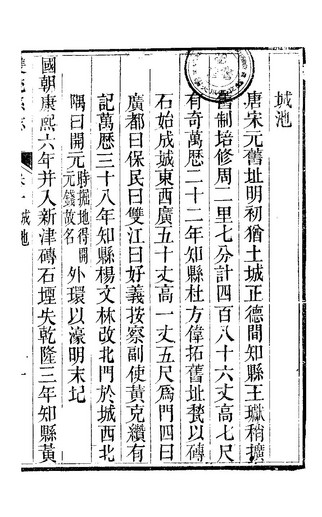 城池
唐宋元舊址明初猶土城正德間知縣王㺞稍擴
舊制培修周二里七分計四百八十六丈高七尺
有奇萬歷二十二年知縣杜方偉拓舊址甃以磚
石始成城東西廣五十丈高一丈五尺爲門四曰
廣都曰保民曰雙江曰好義按察副使黃克纘有
記萬歷三十八年知縣楊文林改北門於城西北
隅曰開元時掘地得開元錢故名外環以濠明末圮
國朝康熙六年并入新津磚石堙失乾隆三年知縣黃
卷一城池